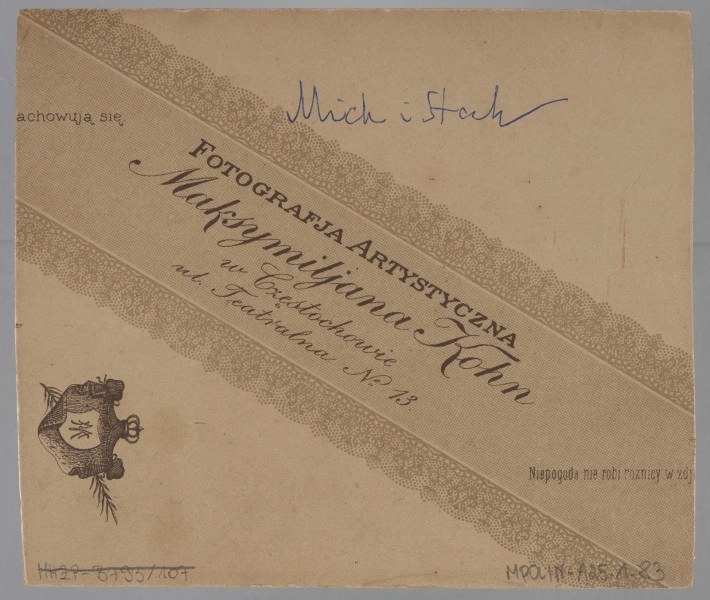 Mich i Stach
achowują się.
FOTOGRAFJA ARTYSTYCZNA
Maksymiljana Kohn
w Częstochowie
ul. Teatralna No 13
MK
Niepogoda nie robi roznicy w zdj
MPOLIN-A25.1.83